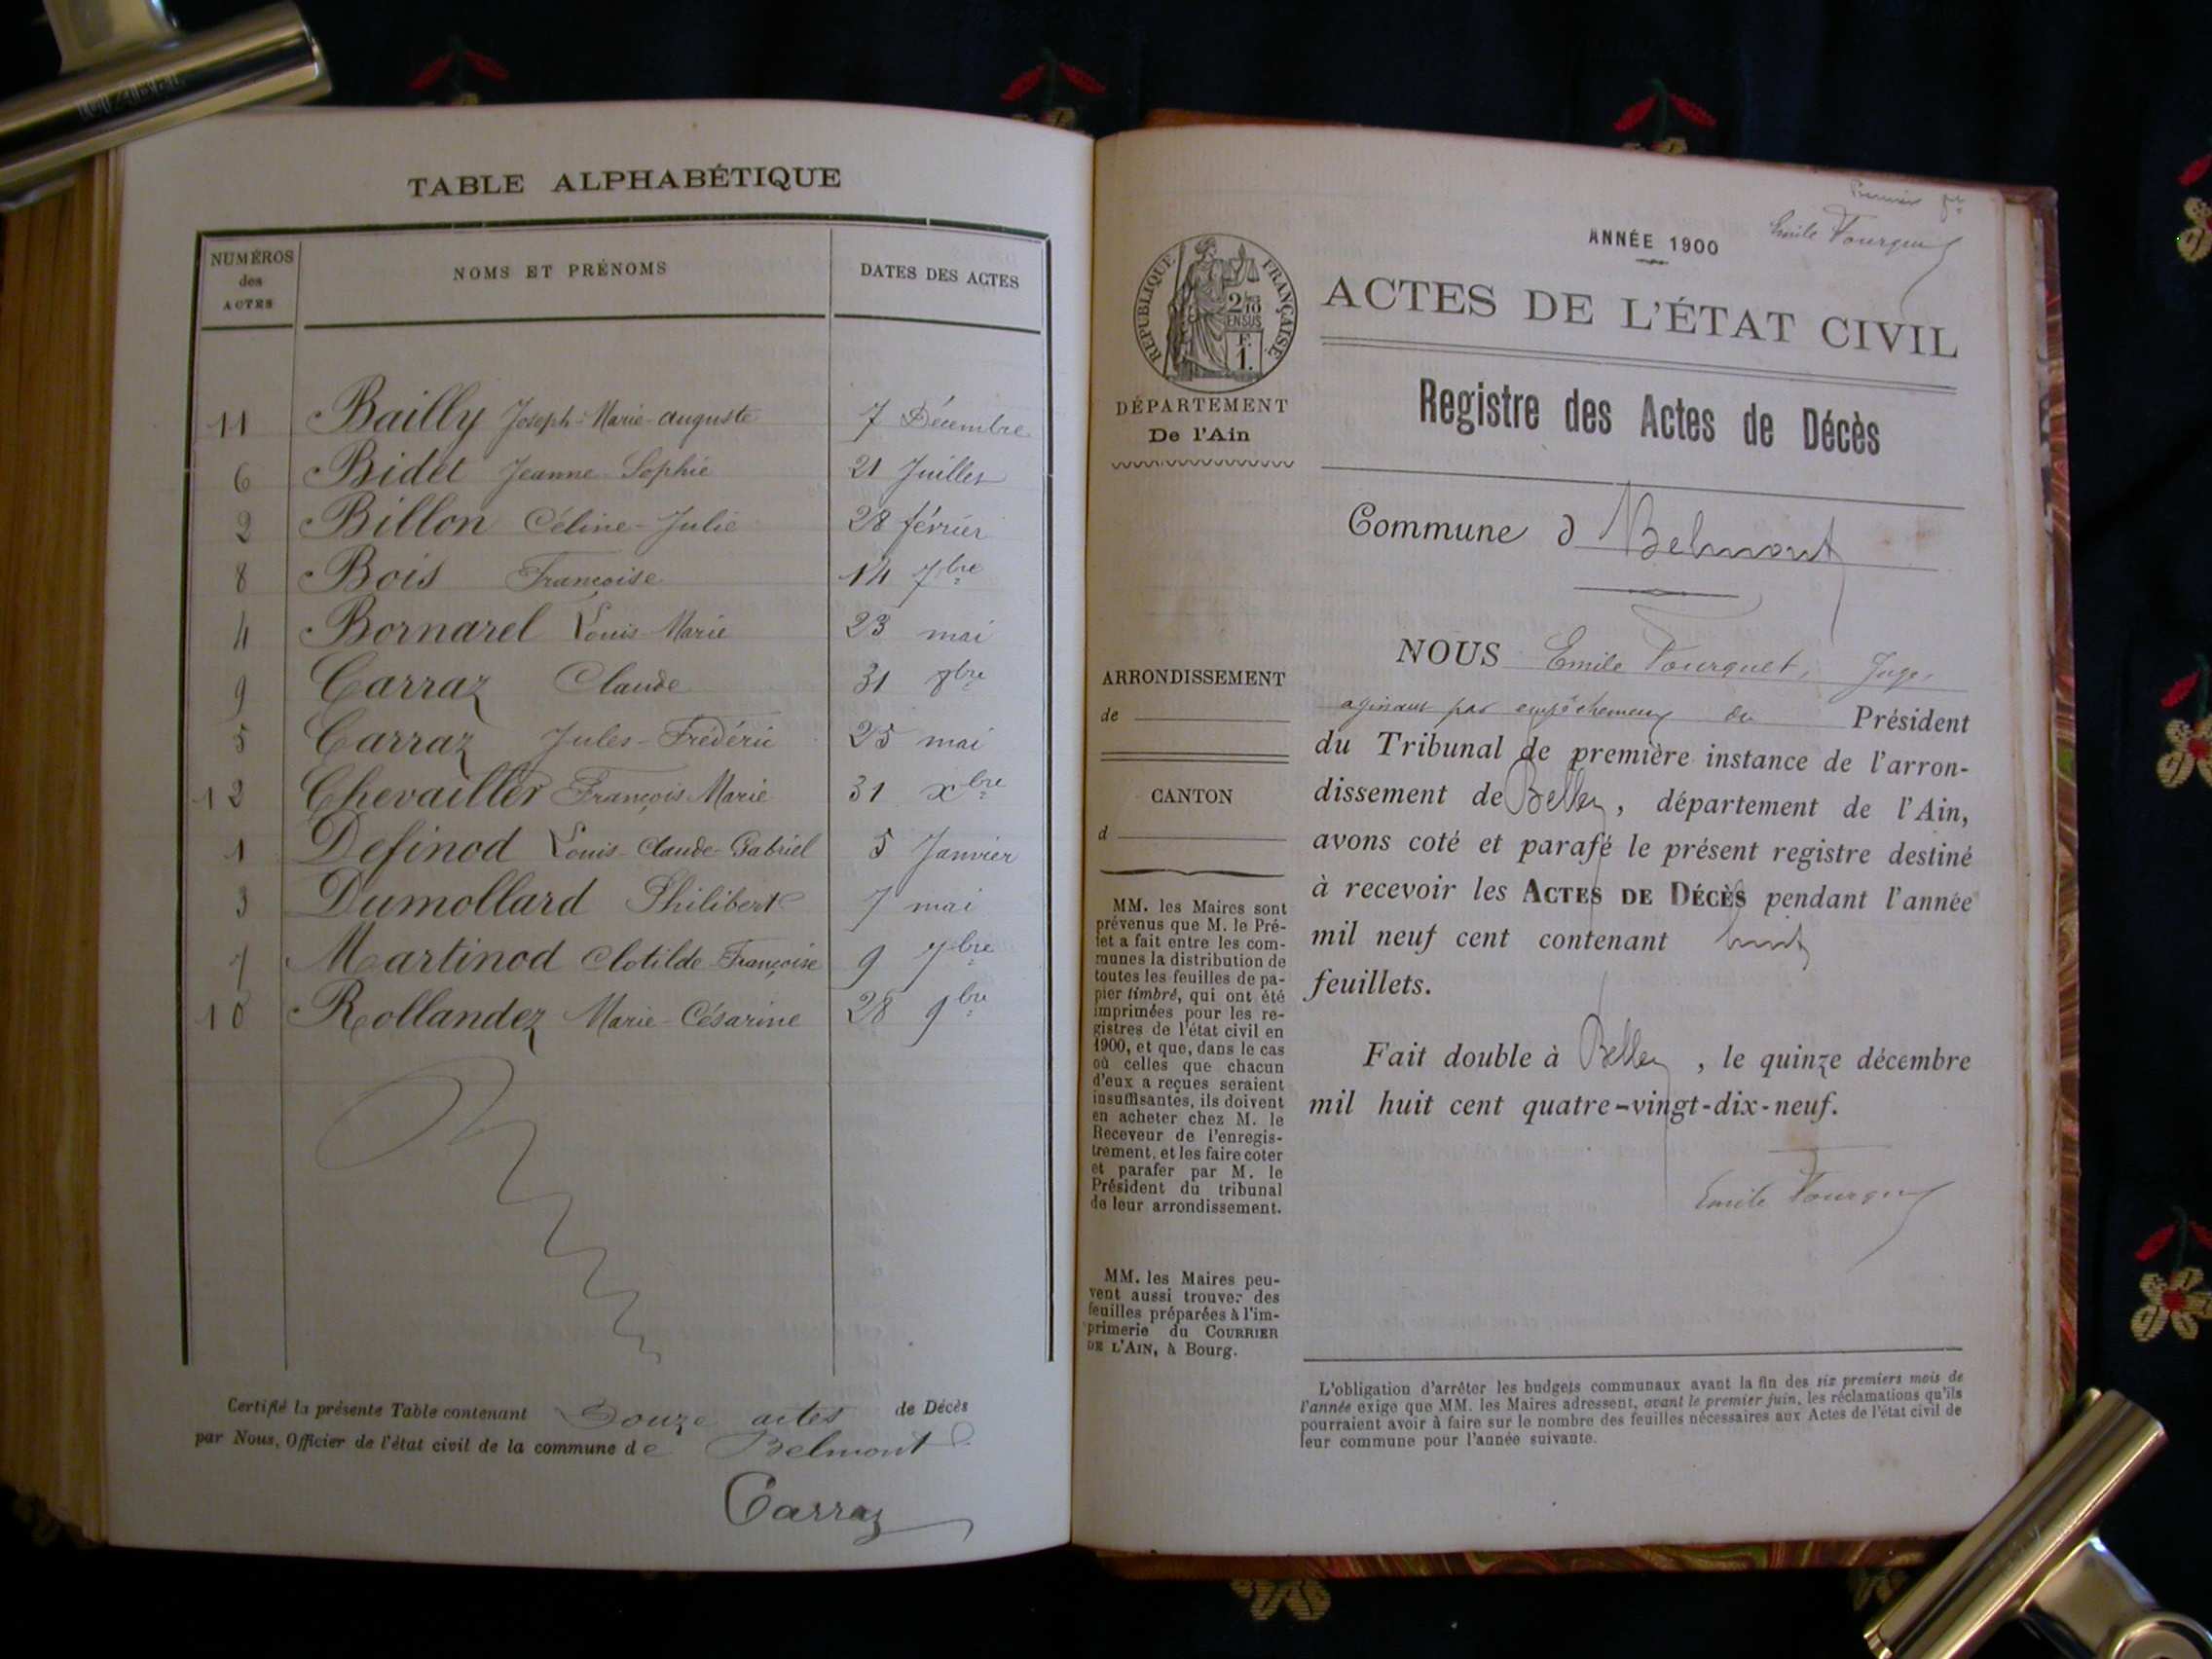 TABLE ALPHABÉTIQUE
NUMÉROS des ACTES NOMS ET PRÉNOMS DATES DES ACTES
11 Bailly Joseph-Marie-auguste 7 Décembre
6 Bidet Jeanne-Sophie 21 Juillet
2 Billon Céline-Julie 28 février
8 Bois Françoise 14 7bre
4 Bornarel Louis-Marie 23 mai
9 Carraz Claude 31 8bre
5 Carraz Jules-Frédéric 25 mai
12 Chevailler François Marie 31 xbre
1 Definod Louis-Claude-Gabriel 5 Janvier
3 Dumollard Philiberte 7 mai
7 Martinod Clotilde-Françoise 9 7bre
10 Rollandez Marie-Césarine 28 9bre
Certifié la présente Table contenant Douze actes de Décès
par Nous, Officier de l'état civil de la commune de Belmont
Carraz
Premier
Emile Fourquet
ANNÉE 1900
ACTES DE L'ÉTAT CIVIL
RÉPUBLIQUE FRANÇAISE
2/10
EN SUS
F.
1.
DÉPARTEMENT
De l'Ain
Registre des Actes de Décès
Commune d Belmont
ARRONDISSEMENT
de
CANTON
d
MM. les Maires sont
prévenus que M. le Pré-
fet a fait entre les com-
munes la distribution de
toutes les feuilles de pa-
pier timbré, qui ont été
imprimées pour les re-
gistres de l'état civil en
1900, et que, dans le cas
où celles que chacun
d'eux a reçues seraient
insuffisantes, ils doivent
en acheter chez M. le
Receveur de l'enregis-
trement, et les faire coter
et parafer par M. le
Président du tribunal
de leur arrondissement.
MM. les Maires peu-
vent aussi trouver des
feuilles préparées à l'im-
primerie du COURRIER
DE L'AIN, à Bourg.
NOUS Emile Fourquet, Juge,
agissant par empêchement du Président
du Tribunal de première instance de l'arron-
dissement de Belley, département de l'Ain,
avons coté et parafé le présent registre destiné
à recevoir les ACTES DE DÉCÈS pendant l'année
mil neuf cent contenant huit
feuillets.
Fait double à Belley, le quinze décembre
mil huit cent quatre-vingt-dix-neuf.
Emile Fourquet
L'obligation d'arrêter les budgets communaux avant la fin des six premiers mois de
l'année exige que MM. les Maires adressent, avant le premier juin, les réclamations qu'ils
pourraient avoir à faire sur le nombre des feuilles nécessaires aux Actes de l'état civil de
leur commune pour l'année suivante.